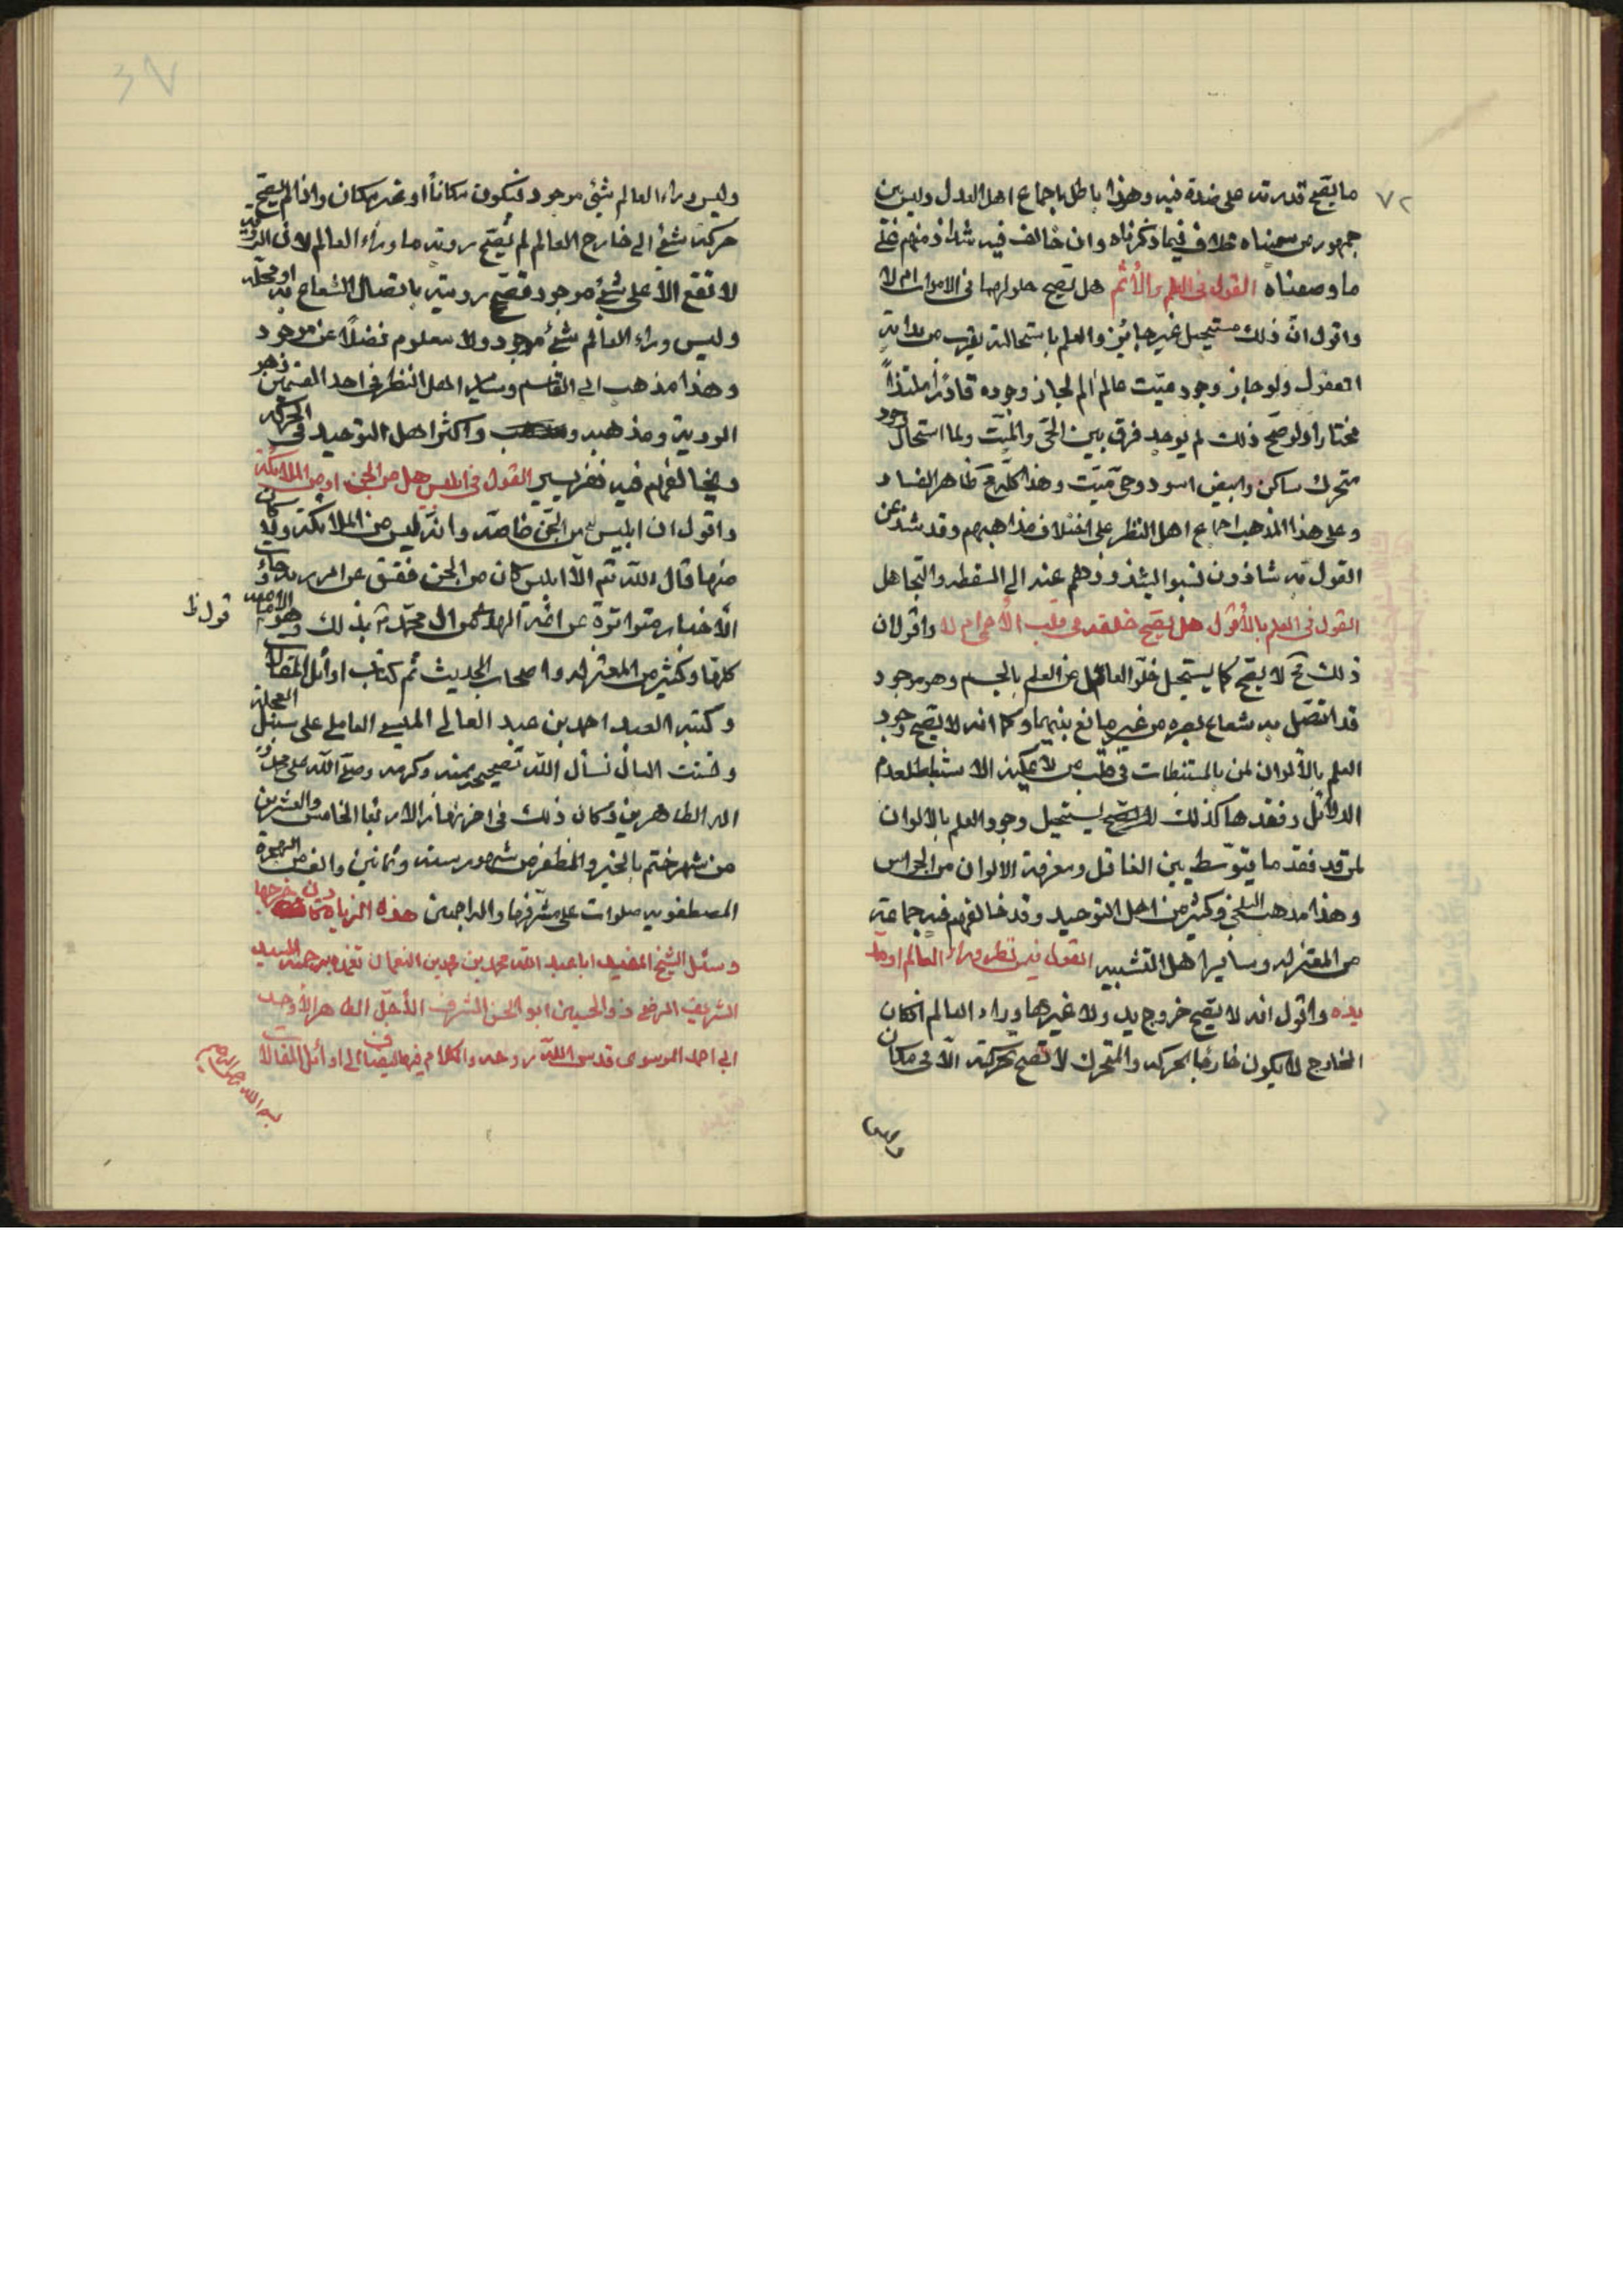 ٧٢
ما يصح قدرته على ضده فيه وهذا باطل باجماع اهل العدل وليس بين
جمهور من سميناه خلاف فيما ذكرناه وان خالف فيه شذاذ منهم على
ما وصفناه القول فى العلم والألم هل يصح حلولهما فى الاموات ام لا
واقول ان ذلك مستحيل غير جايز والعلم باستحالته يقرب من بداية
العقول ولو جاز وجود ميّت عالم الم لجاز وجوده قادرا ملتذاً
مختارا ولو صحّ ذلك لم يوجد فرق بين الحىّ والميّت ولما استحال وجود
متحرك ساكن وابيض اسود وحىّ ميّت وهذا كله مح ظاهر الفساد
وعلى هذا المذهب اجماع اهل النظر على اختلاف مذاهبهم وقد شذ عن
القول به شاذون نسبوا لشذوذهم عنه الى السفطه والتجاهل
القول فى العلم بالألوان هل يصح خلقه فى قلب الأعمى ام لا واقول ان
ذلك مح لا يصحّ كما يستحيل خلوّ العاقل من العلم بالجسم وهو موجود
قد اتصل به شعاع بصره من غير مانع بينهما وكما انه لا يصح وجود
العلم بالألوان لمن بالمستنبطات فى قلب من لا يمكنه الاستنباط لعدم
الدلائل وفقدها كذلك يستحيل وجود العلم بالالوان
لمن قد فقد ما يتوسّط بين العاقل ومعرفة الالوان من الحواس
وهذا مذهب البلخى وكثير من اهل التوحيد وقد خالفهم فيه جماعة
من المعتزله وساير اهل التشبيه القول فيمن نظر وراء العالم او مد
يده واقول انه لا يصح خروج يد ولا غيرها وراء العالم اذ كان
الخارج لا يكون خارجا بحركه والمتحرك لا تصح حركته الّا فى مكان
وليس
وليس وراء العالم شىء موجود فيكون مكاناً او غير مكان واذا لم يصح
حركة شىء الى خارج العالم لم يصحّ روية ما وراء العالم لان الروية
لا تقع الا على شىء موجود تصحّ رويته باتصال الشعاع به او بمحله
وليس وراء العالم شىء موجود ولا معلوم فضلًا عن موجود
وهذا مذهب ابى القاسم وساير اهل النظر فى احد القسمين وهو
الروية ومذهبه واكثر اهل التوحيد فى الحركه
ويخالفهم فيه نفر يسير القول فى ابليس هل من الجن او من الملائكة
واقول ان ابليس من الجن خاصّه وانه ليس من الملائكة ولا كان
منها قال الله تع الّا ابليس كان من الجن ففسق عن امر ربه وجائت
الأخبار متواترة عن ائمة الهدى من ال محمّد بذلك وهو مذهب الاماميه
قول ظ
كلها وكثير من المعتزله واصحاب الحديث تم كتاب اوائل المقالات
وكتبه العبد احمد بن عبد العالى الميسى العاملى على سبيل العجلة
وتشتت البال نسأل الله تصحيحه بمنه وكرمه وصلّى الله على محمد و
اله الطاهرين وكان ذلك فى اخر نهار الاربعا الخامس والعشرين
من شهر ختم بالخير والظفر من شهور سنه وثمانين والف من الهجرة
المصطفويه صلوات على مشرّفها واله اجمعين هذه الزيادة كان خرجها
وسئل الشيخ المفيد ابا عبد الله محمد بن محمد بن النعمان تغمده برحمته السيد
الشريف الرضى ذو الحسبين ابو الحسن الشرف الأجلّ الطاهر الأوحد
ابى احمد الموسوى قدس الله روحه والكلام فيها يضاف الى اوائل المقالات
بسم الله الرحمن الرحيم